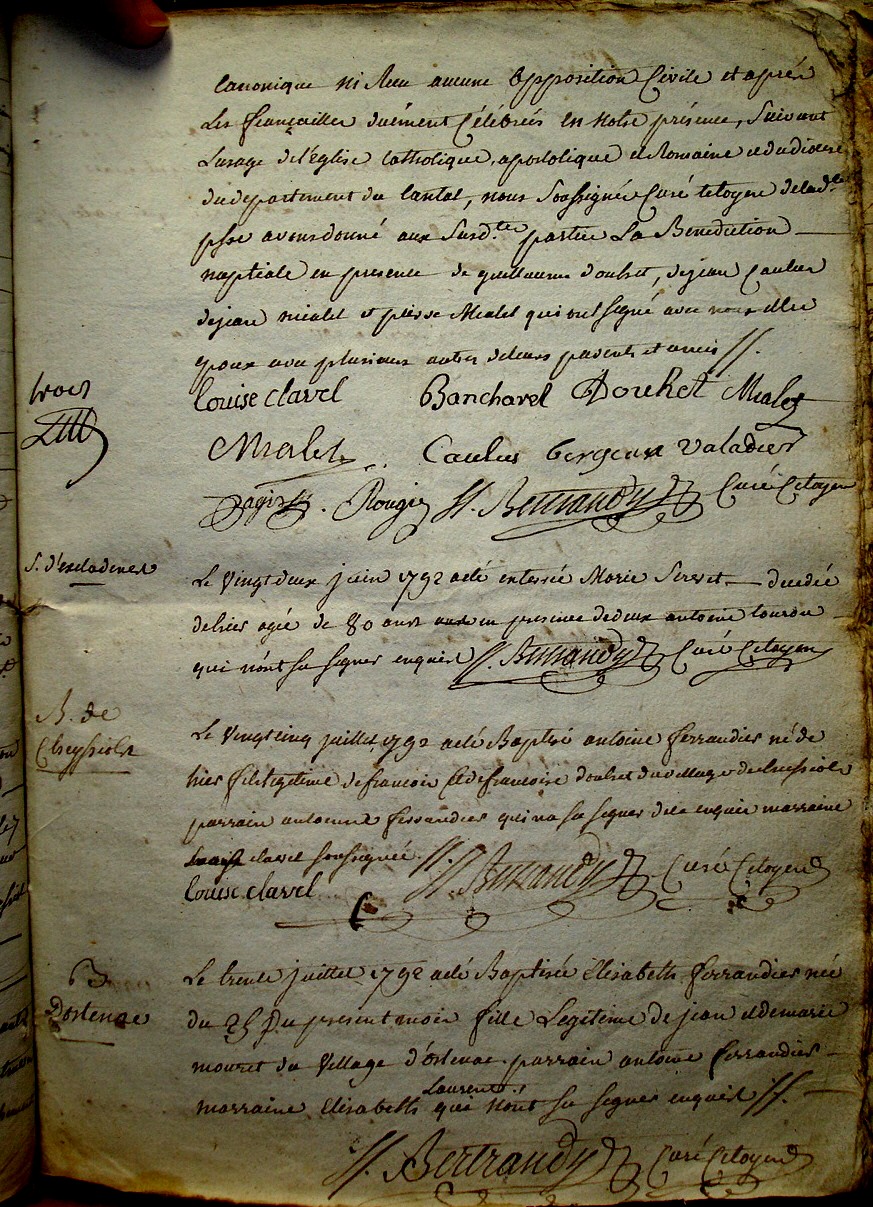 Canonique ni Reçu aucune Opposition Civile et après
Les fiançailles duëment Célébrées en notre présence, Suivant
Lusage de l'église Catholique, apostolique et Romaine et du diocese
du departement du Cantal, nous Soussigné Curé Citoyen de lad.
psse avons donné aux Susd.tes parties La Benediction
nuptiale en presence de guillaume doulset, de jean Caulus
de jean mialet et pierre Mialet qui ont Signé avec nous
epoux avec plusieurs autres de leurs parents et amis //.
Louise clavel Bancharel Douhet Mialet
trois
Mialet Caulus bergeron Valadier
Pagis . Rougier //. Bertrandy Curé Citoyen
Le Vingt deux juin 1792 a eté enterrée Marie Servet decedée
d'hier agée de 80 ans en presence de deux antoine
qui n'ont su signer enquis //. Bertrandy Curé Citoyen
B. de
Cheyssiols
Le Vingt cinq juillet 1792 a eté Baptisé antoine ferrandier né de
hier fils legitime de francois et de francoise doulset du village de
parrain antoine ferrandier qui na su signer de ce enquis marraine
Louise clavel soussignée. //.
//. Bertrandy Curé Citoyen
Louise clavel
B
D'ostenac
Le trente juillet 1792 a eté Baptisée Elisabeth ferrandier née
du 25 Du present mois fille Legitime de jean et de marie
mouret du Village d'ostenac parrain antoine ferrandier
marraine Elisabeth Laurent qui n'ont su signer enquis //.
//. Bertrandy Curé Citoyen